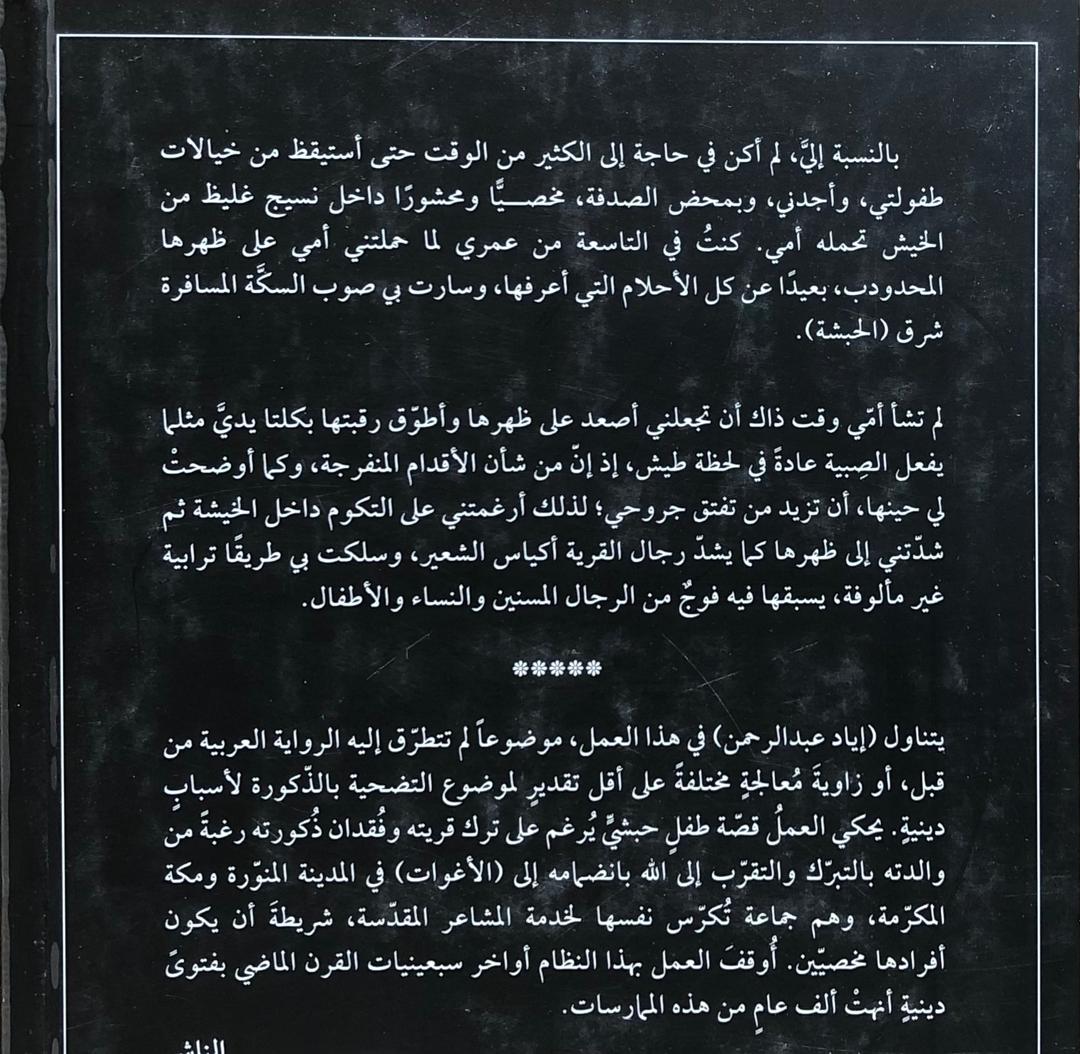 بالنسبة إليَّ، لم أكن في حاجة إلى الكثير من الوقت حتى أستيقظ من خيالات
طفولتي، وأجدني، وبمحض الصدفة، مخصـــيًّا ومحشورًا داخل نسيج غليظ من
الخيش تحمله أمي. كنتُ في التاسعة من عمري لما حملتني أمي على ظهرها
المحدودب، بعيدًا عن كل الأحلام التي أعرفها، وسارت بي صوب السكَّة المسافرة
شرق (الحبشة).
لم تشأ أمّي وقت ذاك أن تجعلني أصعد على ظهرها وأطوّق رقبتها بكلتا يديَّ مثلما
يفعل الصِبية عادةً في لحظة طيش، إذ إنّ من شأن الأقدام المنفرجة، وكما أوضحتْ
لي حينها، أن تزيد من تفتق جروحي؛ لذلك أرغمتني على التكوم داخل الخيشة ثم
شدّتني إلى ظهرها كما يشدّ رجال القرية أكياس الشعير، وسلكت بي طريقًا ترابية
غير مألوفة، يسبقها فيه فوجٌ من الرجال المسنين والنساء والأطفال.
❃❃❃❃❃
يتناول (إياد عبدالرحمن) في هذا العمل، موضوعاً لم تتطرّق إليه الرواية العربية من
قبل، أو زاويةَ مُعالجةٍ مختلفةً على أقل تقديرٍ لموضوع التضحية بالذّكورة لأسبابٍ
دينيةٍ. يحكي العملُ قصّة طفلٍ حبشيٍّ يُرغم على ترك قريته وفُقدان ذُكورته رغبةً من
والدته بالتبرّك والتقرّب إلى الله بانضمامه إلى (الأغوات) في المدينة المنوّرة ومكة
المكرّمة، وهم جماعة تُكرّس نفسها لخدمة المشاعر المقدّسة، شريطةَ أن يكون
أفرادها مخصيّين. أُوقفَ العمل بهذا النظام أواخر سبعينيات القرن الماضي بفتوىً
دينيةٍ أنهتْ ألف عامٍ من هذه الممارسات.
الناشر